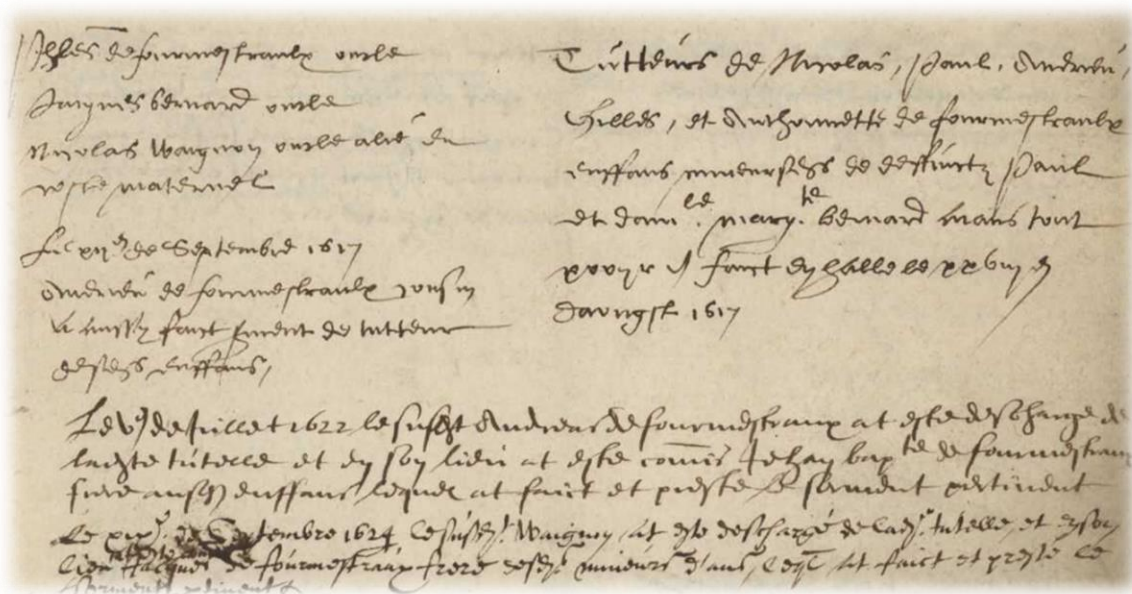 Gilles de fourmestraulx oncle
Jacques bernard oncle
Nicolas Waignon oncle alié du
costé maternel
Le xii.e de Septembre 1617
Andrieu de fourmestraulx cousin
a aussy faict serment de tutteur
desdis enffans,
Tutteurs de Nicolas, Paul, Andrieu,
Gilles, et Anthonnette de fourmestraulx
enffans mineurs de deffunctz Paul
et dam.le mary.e bernard
faict en halle le
daougst 1617
Le de Jullet 1622 le susdit Andrieu de fourmestraux at esté deschargé de
ladite tutelle et en son lieu at esté commis Jehan bap.te de fourmestraux
frere ausdis enffans lequel at faict et presté le serment pertinent
Le de Septembre 1624 le susdit Waignon at esté deschargé de ladite tutelle et en son
lieu Jacques de fourmestraux frere desdis mineurs d'ans, leql at faict et presté le
serment pertinent